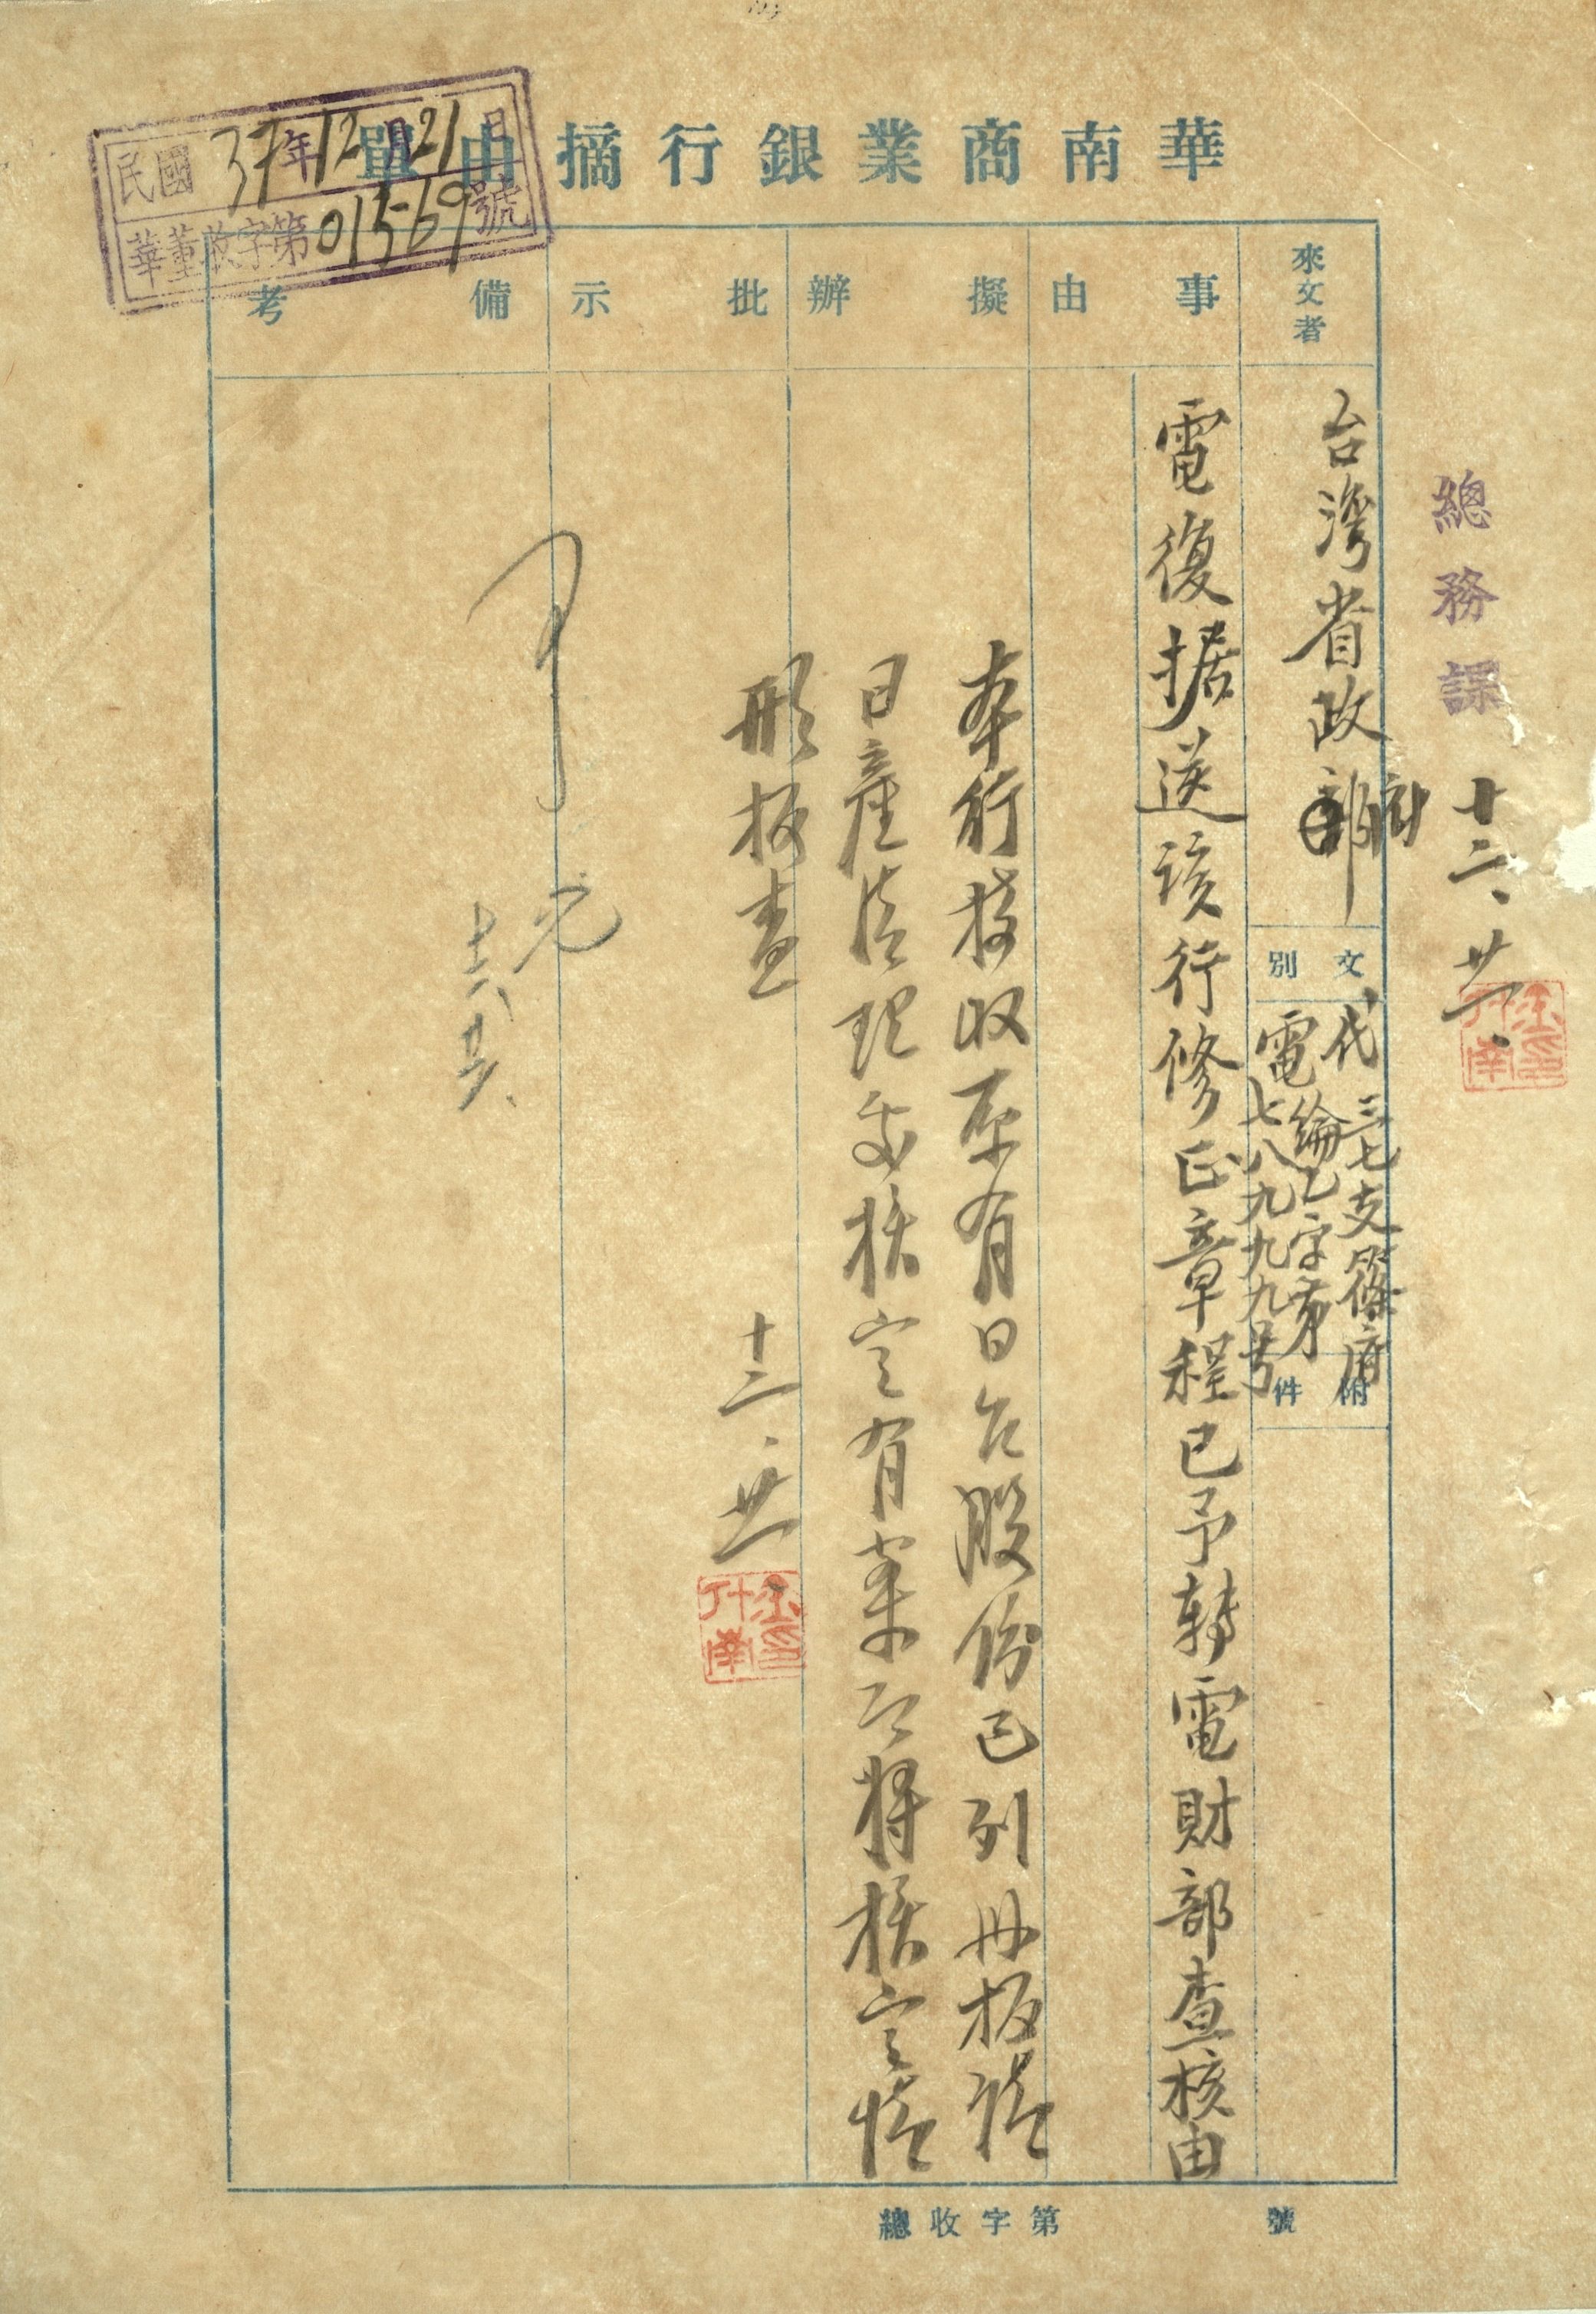 華南商業銀行摘由單
民國37年12月21日
華董收字第01569號
總務課
十二、廿一、
來文者
台灣省政府
文別
代電
三七支篠府
綸乙字第
七八九九九号
附件
事由
電復据送該行修正章程已予轉電財部查核由
擬辦
本行接收原有日台股份已列冊報請
日產清理處核定有案已將核定情
形報查
十二、廿一
批示
備考
總收字第 號